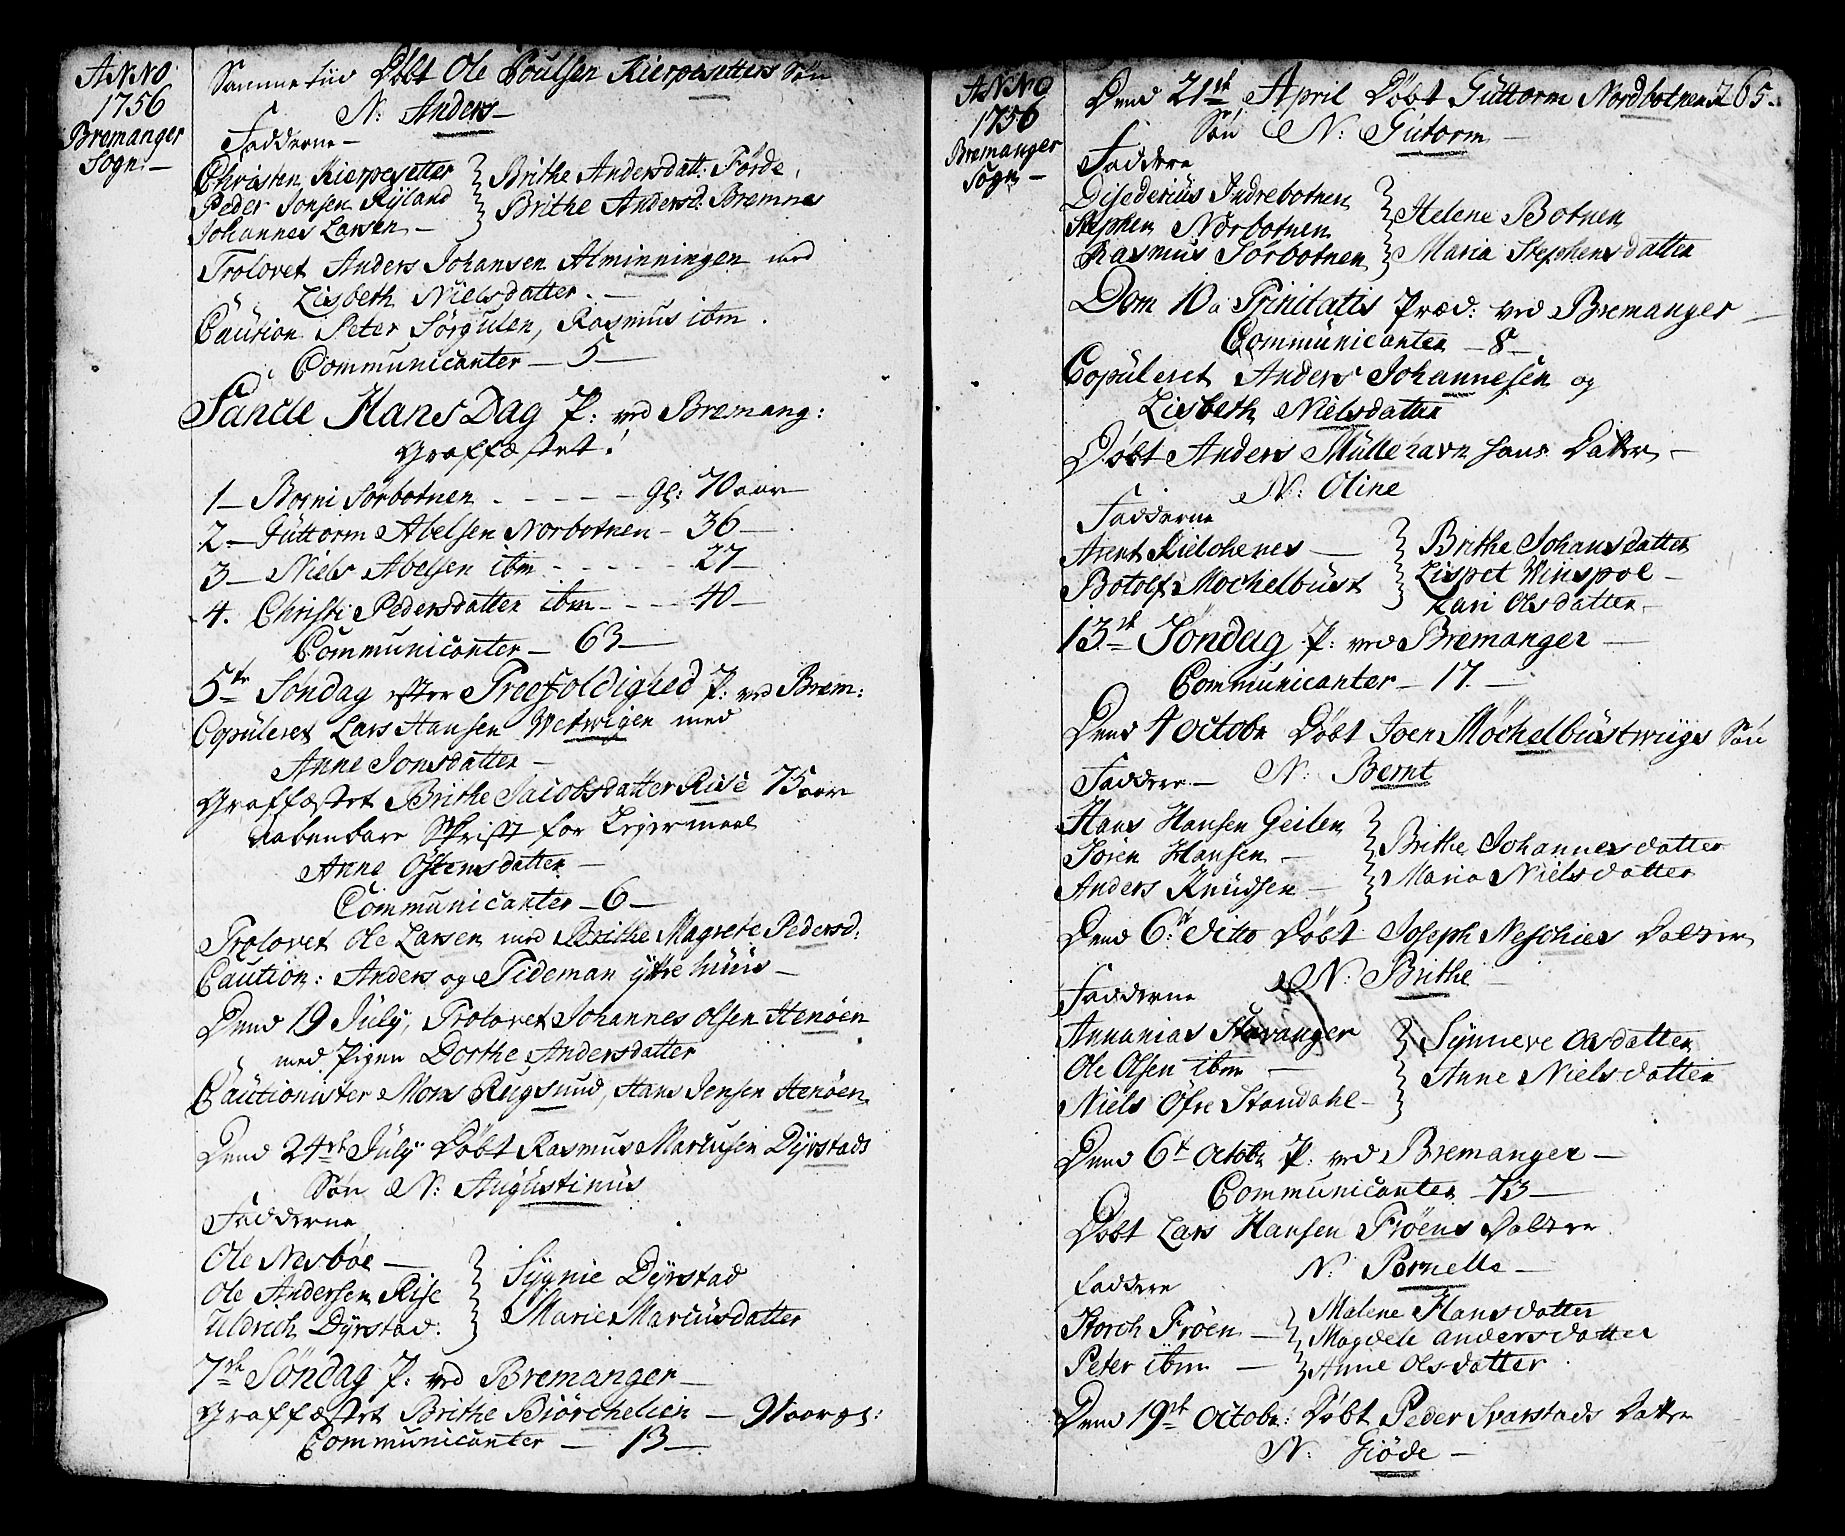 ANNO
1756
Bremanger
Sogn. —
Samme tiid Døbt Ole Poulsen Kierpesetters Søn
N: Anders —
Fadderne —
Christen Kierpesetter } Brithe Andersdatt: Førde,
Peder Jonsen Ryland } Brithe Andersd: Bremnes
Johannes Larsen —
Trolovet Anders Johansen Alminningen med
Lisbeth Nielsdatter. —
Caution Peter Sørgulen, Rasmus ibm.
Communicanter — 5 —
Sancte Hans Dag P: ved Bremang:
Graffæstet!
1 — Borni Sørbotnen - - - - - gl: 70 aar
2. — Güttorm Abelsen Norbotnen - 36 —
3 — Niels Abelsen ibm - - - - - 27 —
4. Christi Pedersdatter ibm - - - 40 —
Communicanter — 63 —
5te Søndag efter Treefoldighed P: ved Brem:
Copuleret Lars Hansen Wetwigen med
Anne Jonsdatter —
Graffæstet Brithe Jacobsdatter Rise 75 aar
Aabenbare Skrift for Lejermaal
Anne Østensdatter —
Communicanter — 6 —
Trolovet Ole Larsen med Brithe Magrete Pedersd:
Caution: Anders og Tideman ytre huus —
Dend 19 July, Trolovet Johannes Olsen Henøen
med Pigen Dorthe Andersdatter
Cautionister Mons Rugsund, Hans Jensen Henøen
Dend 24de July Døbt Rasmus Marcusen Dyrstads
Søn N: Augustinus
Fadderne
Ole Nesbøe — } Sygnie Dyrstad
Ole Andersen Rise } Marie Marcusdatter
Uldrich Dyrstad.
7de Søndag P: ved Bremanger —
Graffæstet Brithe Biørchelien — 91 aar gl:
Communicanter — 13 —
ANNO
1756
Bremanger
Sogn —
265.
Dend 21st April Døbt Güttorm Nordbotnens
Søn N: Gutorm —
Faddere
Disederius Indrebotnen } Helene Botnen
Stephen Norbotnen } Maria Stephensdatter
Rasmus Sørbotnen
Dom 10a Trinitatis Præd: ved Bremanger —
Communicanter — 8 —
Copuleret Anders Johannesen og
Lisbeth Nielsdatter
Døbt Anders Müllehavn hans Datter —
N: Oline
Fadderne
Arent Kielchenes — } Brithe Johansdatter
Botolf Mochelbust } Lispet Winspol —
Kari Olsdatter —
13de Søndag P: ved Bremanger —
Communicanter — 17. —
Dend 4 Octobr Døbt Joen Møchelbustwiigs Søn
Faddere — N: Bernt
Hans Hansen Geilen } Brithe Johannesdatter
Søren Hansen — } Maria Nielsdatter
Anders Knudsen —
Dend 6t dito Døbt Joseph Neschies Datter
Fadderne N: Brithe —
Annanias Stavanger } Synneve Olsdatter
Ole Olsen ibm — } Anne Nielsdatter
Niels Øfre Standahl —
Dend 6t Octobr P: ved Bremanger —
Communicanter — 73 —
Døbt Lars Hansen Frøens Datter
Faddere N: Pernelle —
Storch Frøen — } Malene Hansdatter
Peter ibm — } Magdele Andersdatter
Anne Olsdatter
Dend 19de Octobr: Døbt Peder Svarstads Datter
N: Giøde —